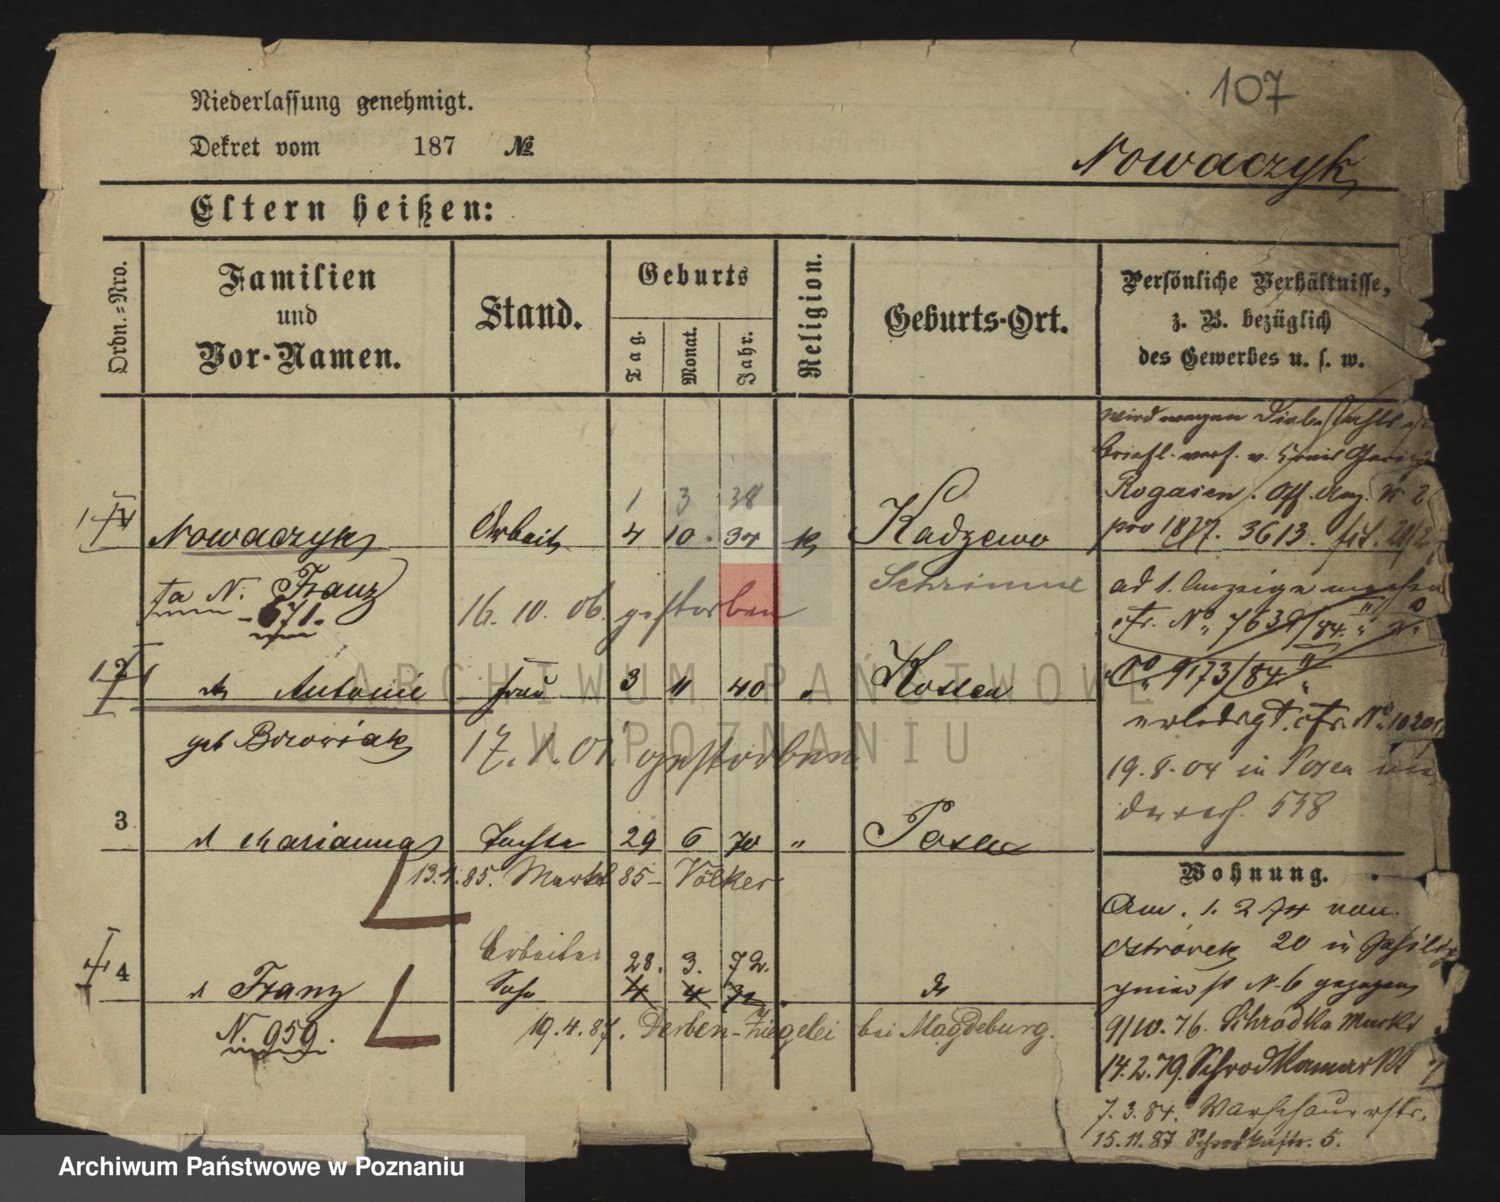 107
Niederlassung genehmigt.
Dekret vom 187 №
Nowaczyk
Eltern heißen:
Ordn.-Nro.
Familien
und
Vor-Namen.
Stand.
Geburts
Tag.
Monat.
Jahr.
Religion.
Geburts-Ort.
Persönliche Verhältnisse,
z. B. bezüglich
des Gewerbes u. s. w.
1 3 38
Nowaczyk Arbeit 4 10. 34 k Kadzewo
ta N. Franz
671.
16. 10. 06. gestorben
Schrimm
2 Antonie Frau 3 11 40 " Kosten
geb Borowiak
17. 1. 01. gestorben
3 d Marianna Tochter 29 6 70 " Posen
13.4.85. Markt 85 - Völker
Arbeiter 28. 3. 72.
4 d Franz Sohn 4 4 " do
N. 959.
19. 4. 87. Derben-Ziegelei bei Magdeburg.
wird wegen Diebstahls
Rogasen. Off. Anz. N 2
pro 1877. 3613.
ad 1. Anzeige
cfr. No 7639/84.
No 9173/84
erledigt. cfr. No 1020
19.8.04 in Posen
558
Wohnung.
Am. 1. 2 74 von
Ostrówek 20 in
N. 6 gezogen
9/10. 76. Schrodka Markt
14.2.79. Schrodkamarkt 7
7. 3. 84. Warschauerstr.
15.11.87 Schrodkastr. 5.
ARCHIWUM PAŃSTWOWE
W POZNANIU
Archiwum Państwowe w Poznaniu